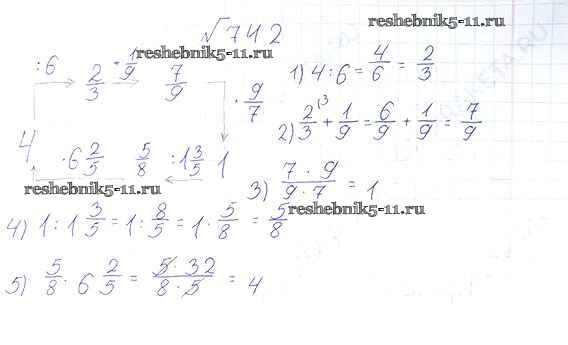 √742
reshebnik5-11.ru
:6 2/3 +1/9 7/9
· 9/7
4 · 6 2/5 5/8 :1 3/5 1
reshebnik5-11.ru
1) 4:6 = 4/6 = 2/3
2) 2/3 + 1/9 = 6/9 + 1/9 = 7/9
3) 7·9/9·7 = 1
reshebnik5-11.ru
4) 1:1 3/5 = 1: 8/5 = 1· 5/8 = 5/8
reshebnik5-11.ru
5) 5/8 · 6 2/5 = 5·32/8·5 = 4